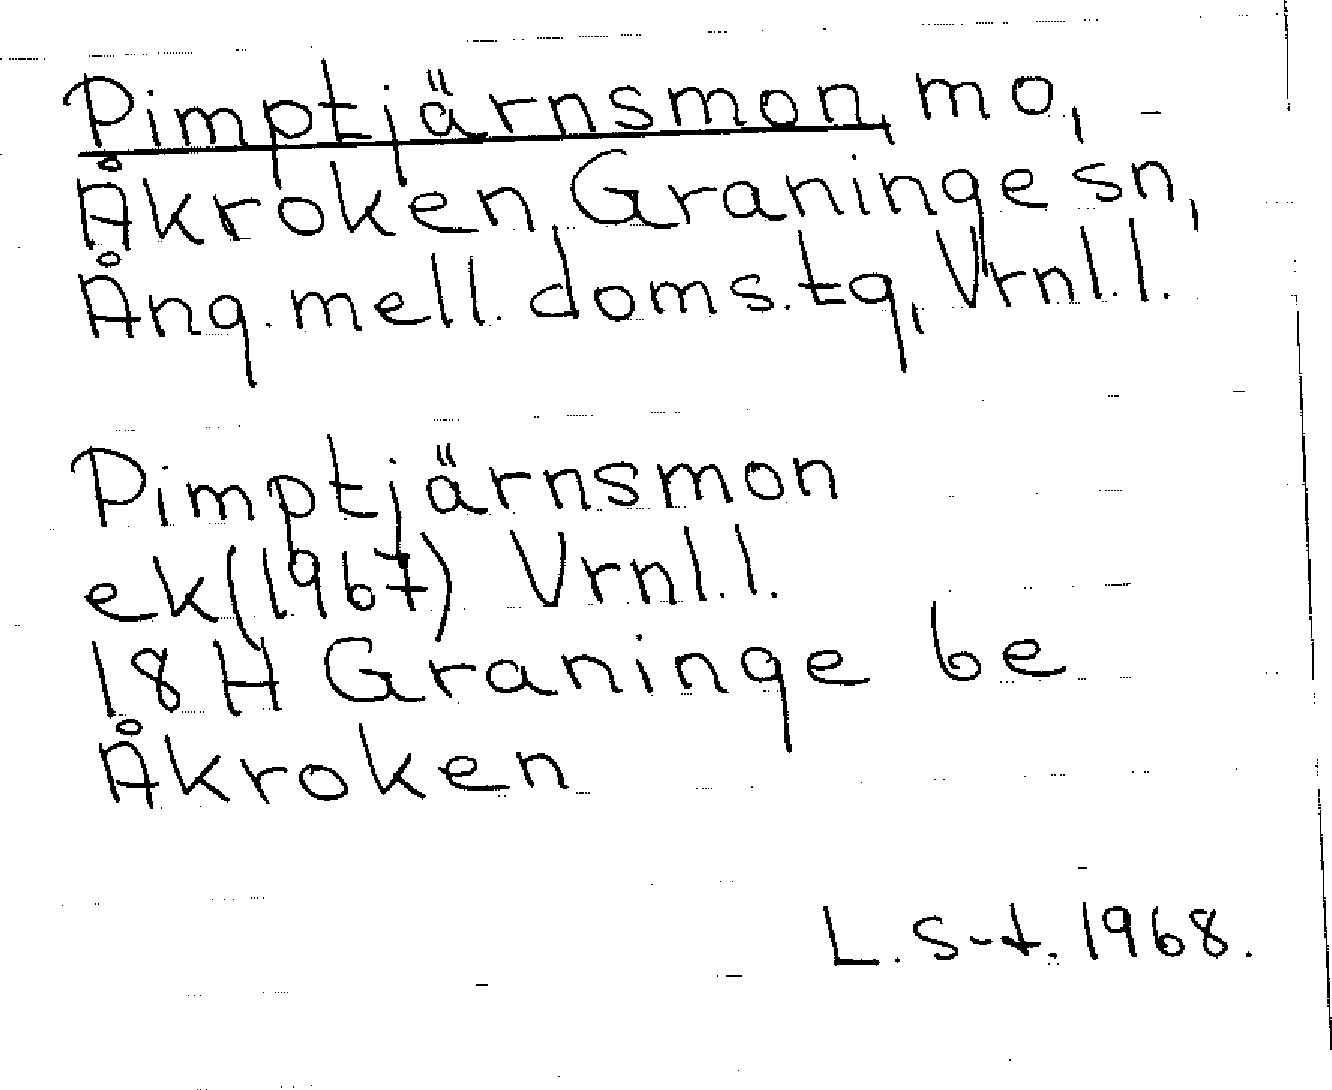 Pimptjärnsmon, mo,
Åkroken, Graninge sn,
Ång. mell. doms. tg, Vrnl.l.
Pimptjärnsmon
ek (1967) Vrnl.l.
18 H Graninge 6e
Åkroken
L. S-t. 1968.